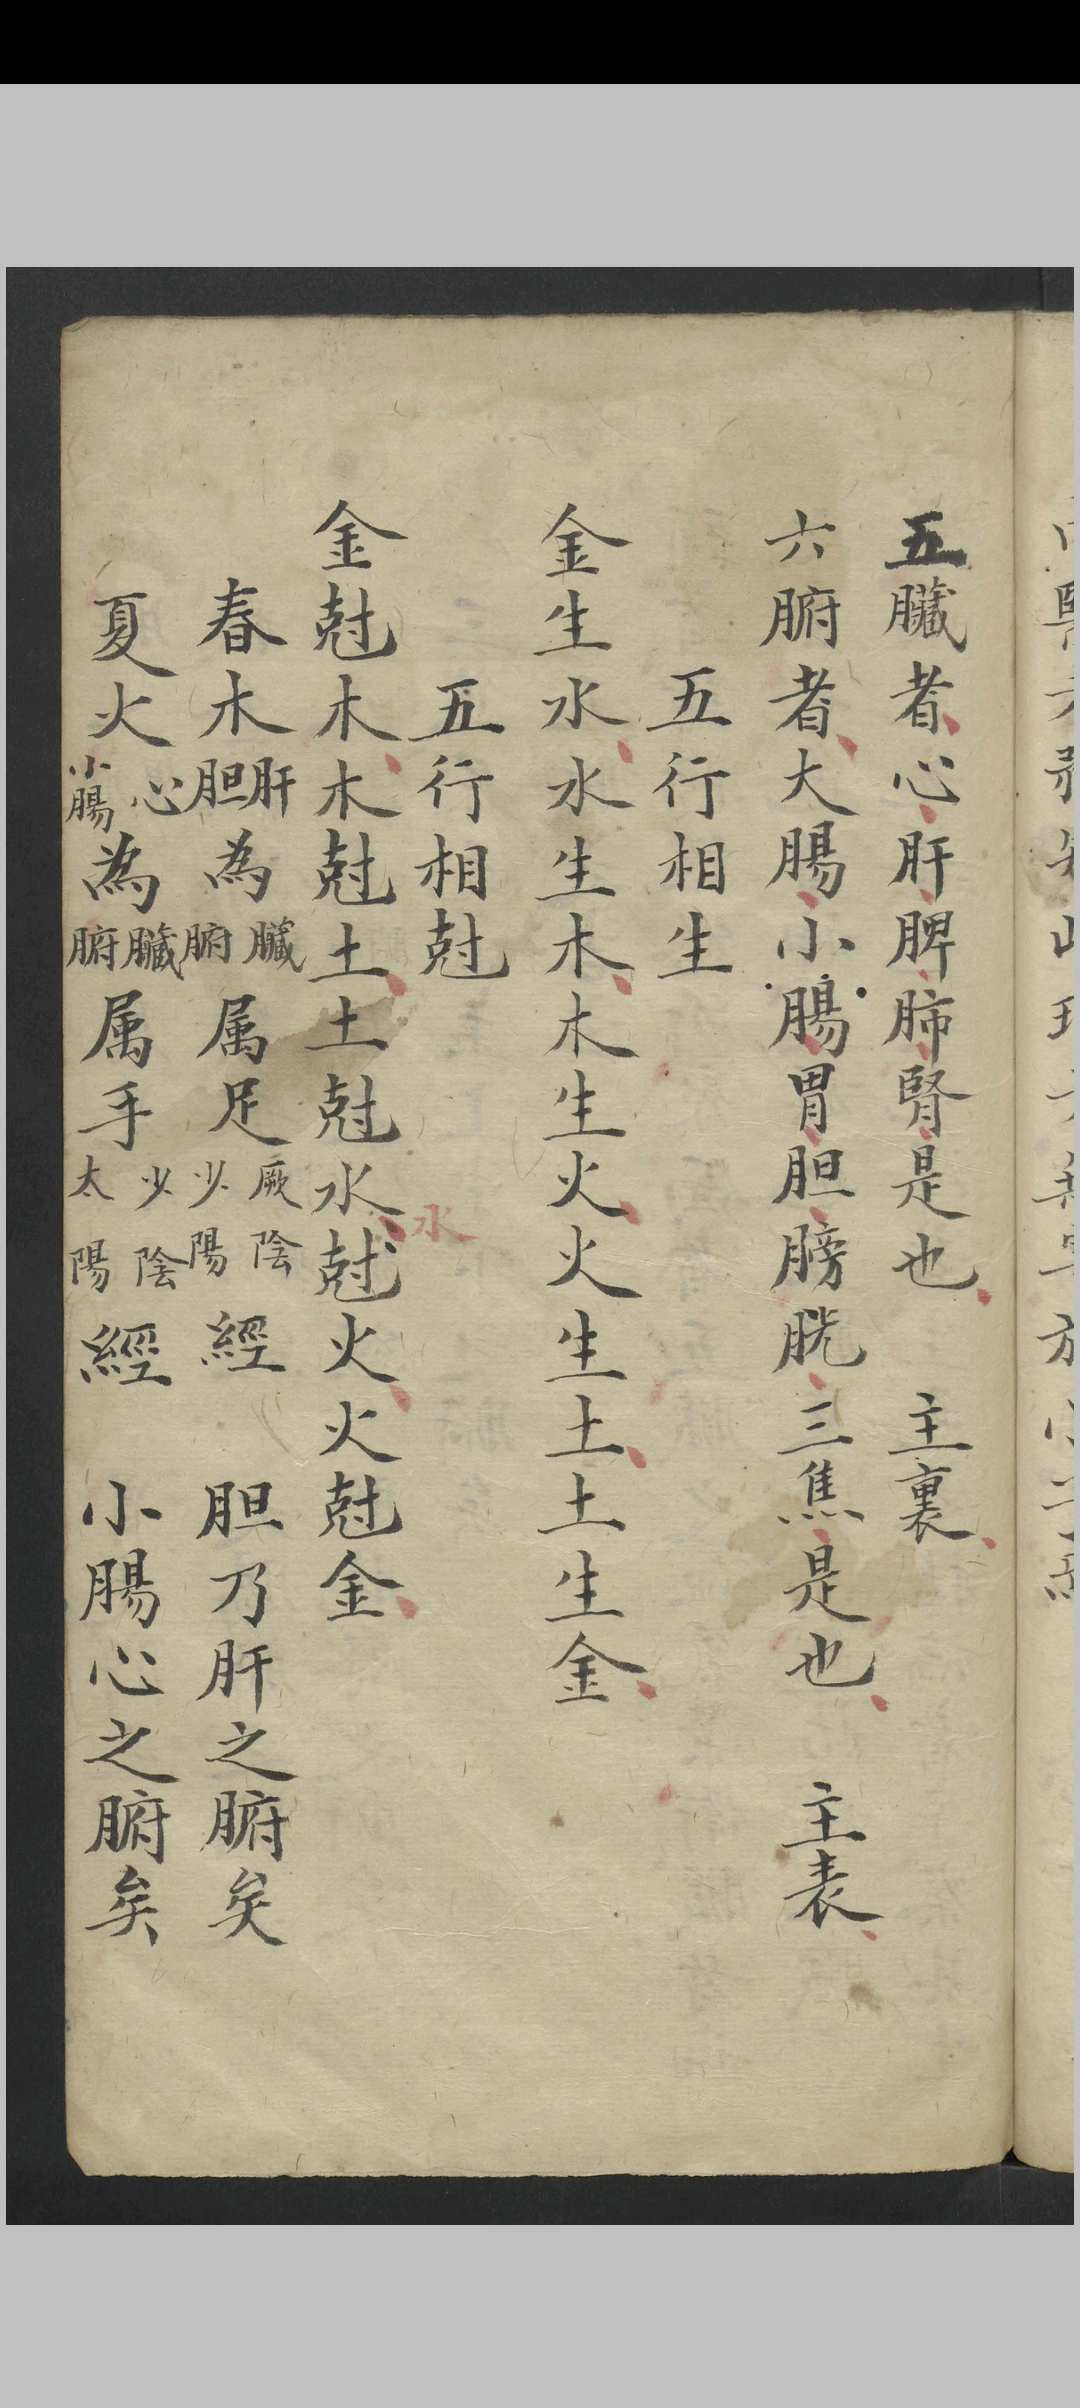 五臟者心肝脾肺腎是也　主裏
六腑者大腸小腸胃胆膀胱三焦是也　主表
五行相生
金生水水生木木生火火生土土生金
五行相尅
水
金尅木木尅土土尅水尅火火尅金
春木肝胆為臟腑属足厥陰少陽經　胆乃肝之腑矣
夏火心小腸為臟腑属手少陰太陽經　小腸心之腑矣